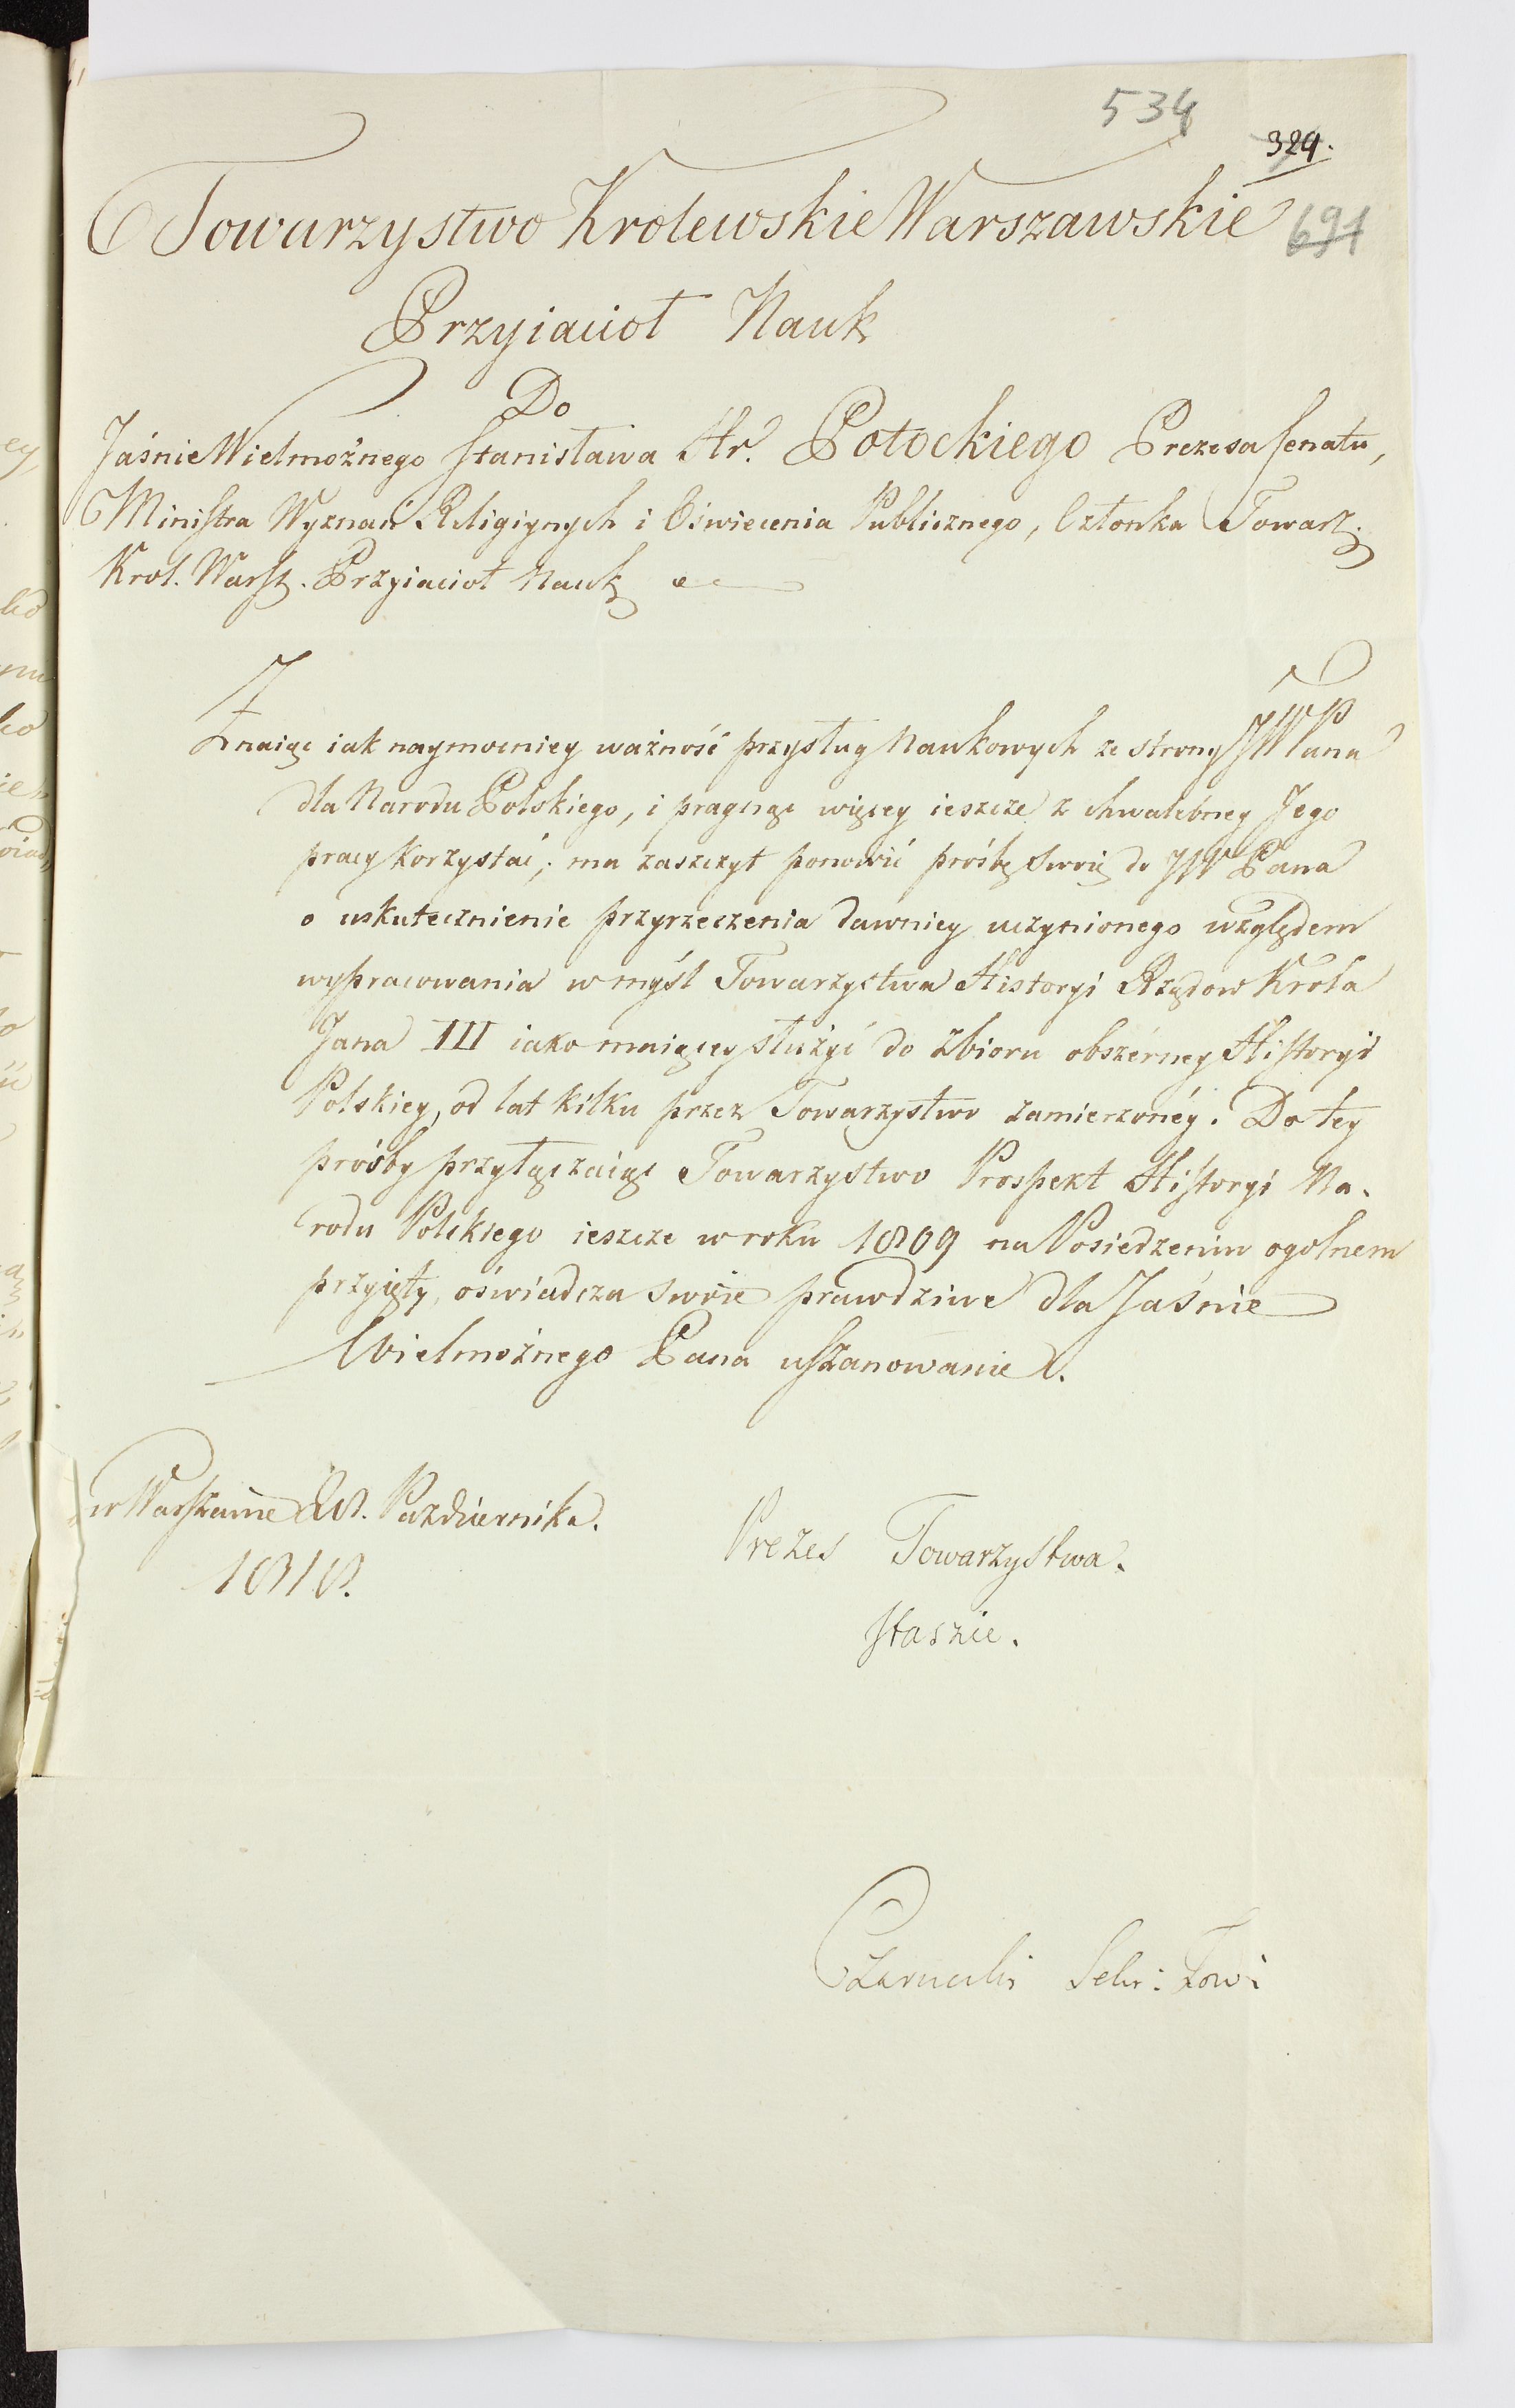 534
324.
691
Towarzystwo Krolewskie Warszawskie
Przyiacioł Nauk
Do
Jaśnie Wielmożnego Stanisława Hr. Potockiego Prezesa Senatu,
Ministra Wyznań Religiynych i Oświecenia Publicznego, Członka Towarz.
Krol. Warsz. Przyiacioł Nauk
Znaiąc iak naymocniey ważność przysług Naukowych ze strony JWPana
dla Narodu Polskiego, i pragnąc więcey ieszcze z chwalebney Jego
pracy korzystać, ma zaszczyt ponowić prośbę swoię do JW Pana
o uskutecznienie przyrzeczenia dawniey uczynionego względem
wypracowania w myśl Towarzystwa Historyi Rządow Krola
Jana III iako maiącey służyć do zbioru obszérney Historyi
Polskiey, od lat kilku przez Towarzystwo zamierzonéy. Do tey
prośby przyłączaiąc Towarzystwo Prospekt Historyi Na-
rodu Polskiego ieszcze w roku 1809 na Posiedzeniu ogolnem
przyięty, oświadcza swoie prawdziwe dla Jaśnie
Wielmożnego Pana uszanowanie.
w Warszawie 28. Pazdziernika.
1818.
Prezes Towarzystwa.
Staszic.
Czarnecki Sekr: Tow: